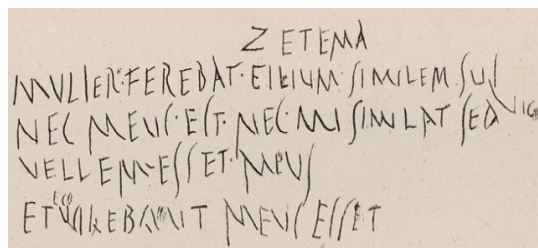 ZETEMA
MVLIER·FEREBAT·FILIVM·SIMILEM·SVI
NEC MEVS·EST·NEC·MI SIMILAT SED
VELLEM·ESSET·MEVS
ET
EGO
MEVS ESSET